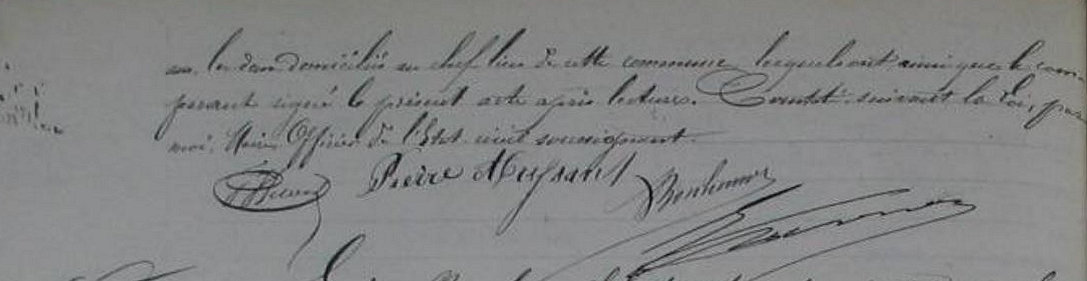 ans, les deux domiciliés au chef lieu de cette commune, lesquels ont ainsi que le com-
parant signé le présent acte après lecture. Constaté suivant la loi, par
moi, Maire Officier de l'Etat civil soussignant.
Pierre Mussant Bonhomme